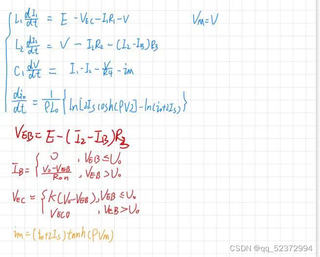 L₁ di₁/dt = E - V_EC - I₁R₁ - V    V_m = V
L₂ di₂/dt = V - I₂R₂ - (I₂ - I_B)R₃
C₁ dV/dt = I₁ - I₂ - V/R₄ - i_m
di₀/dt = 1/ρL₀ { ln[2I_S cosh(ρV₂)] - ln(i₀+2I_S) }
V_EB = E - (I₂ - I_B)R₃
I_B = { 0 , V_EB ≤ U₀
V₀-V_EB/R_on , V_EB > U₀
V_EC = { K(V₀-V_EB), V_EB ≤ U₀
V_EC0 , V_EB > U₀
i_m = (i₀+2I_S) tanh(ρV_m)
CSDN @qq_52372994